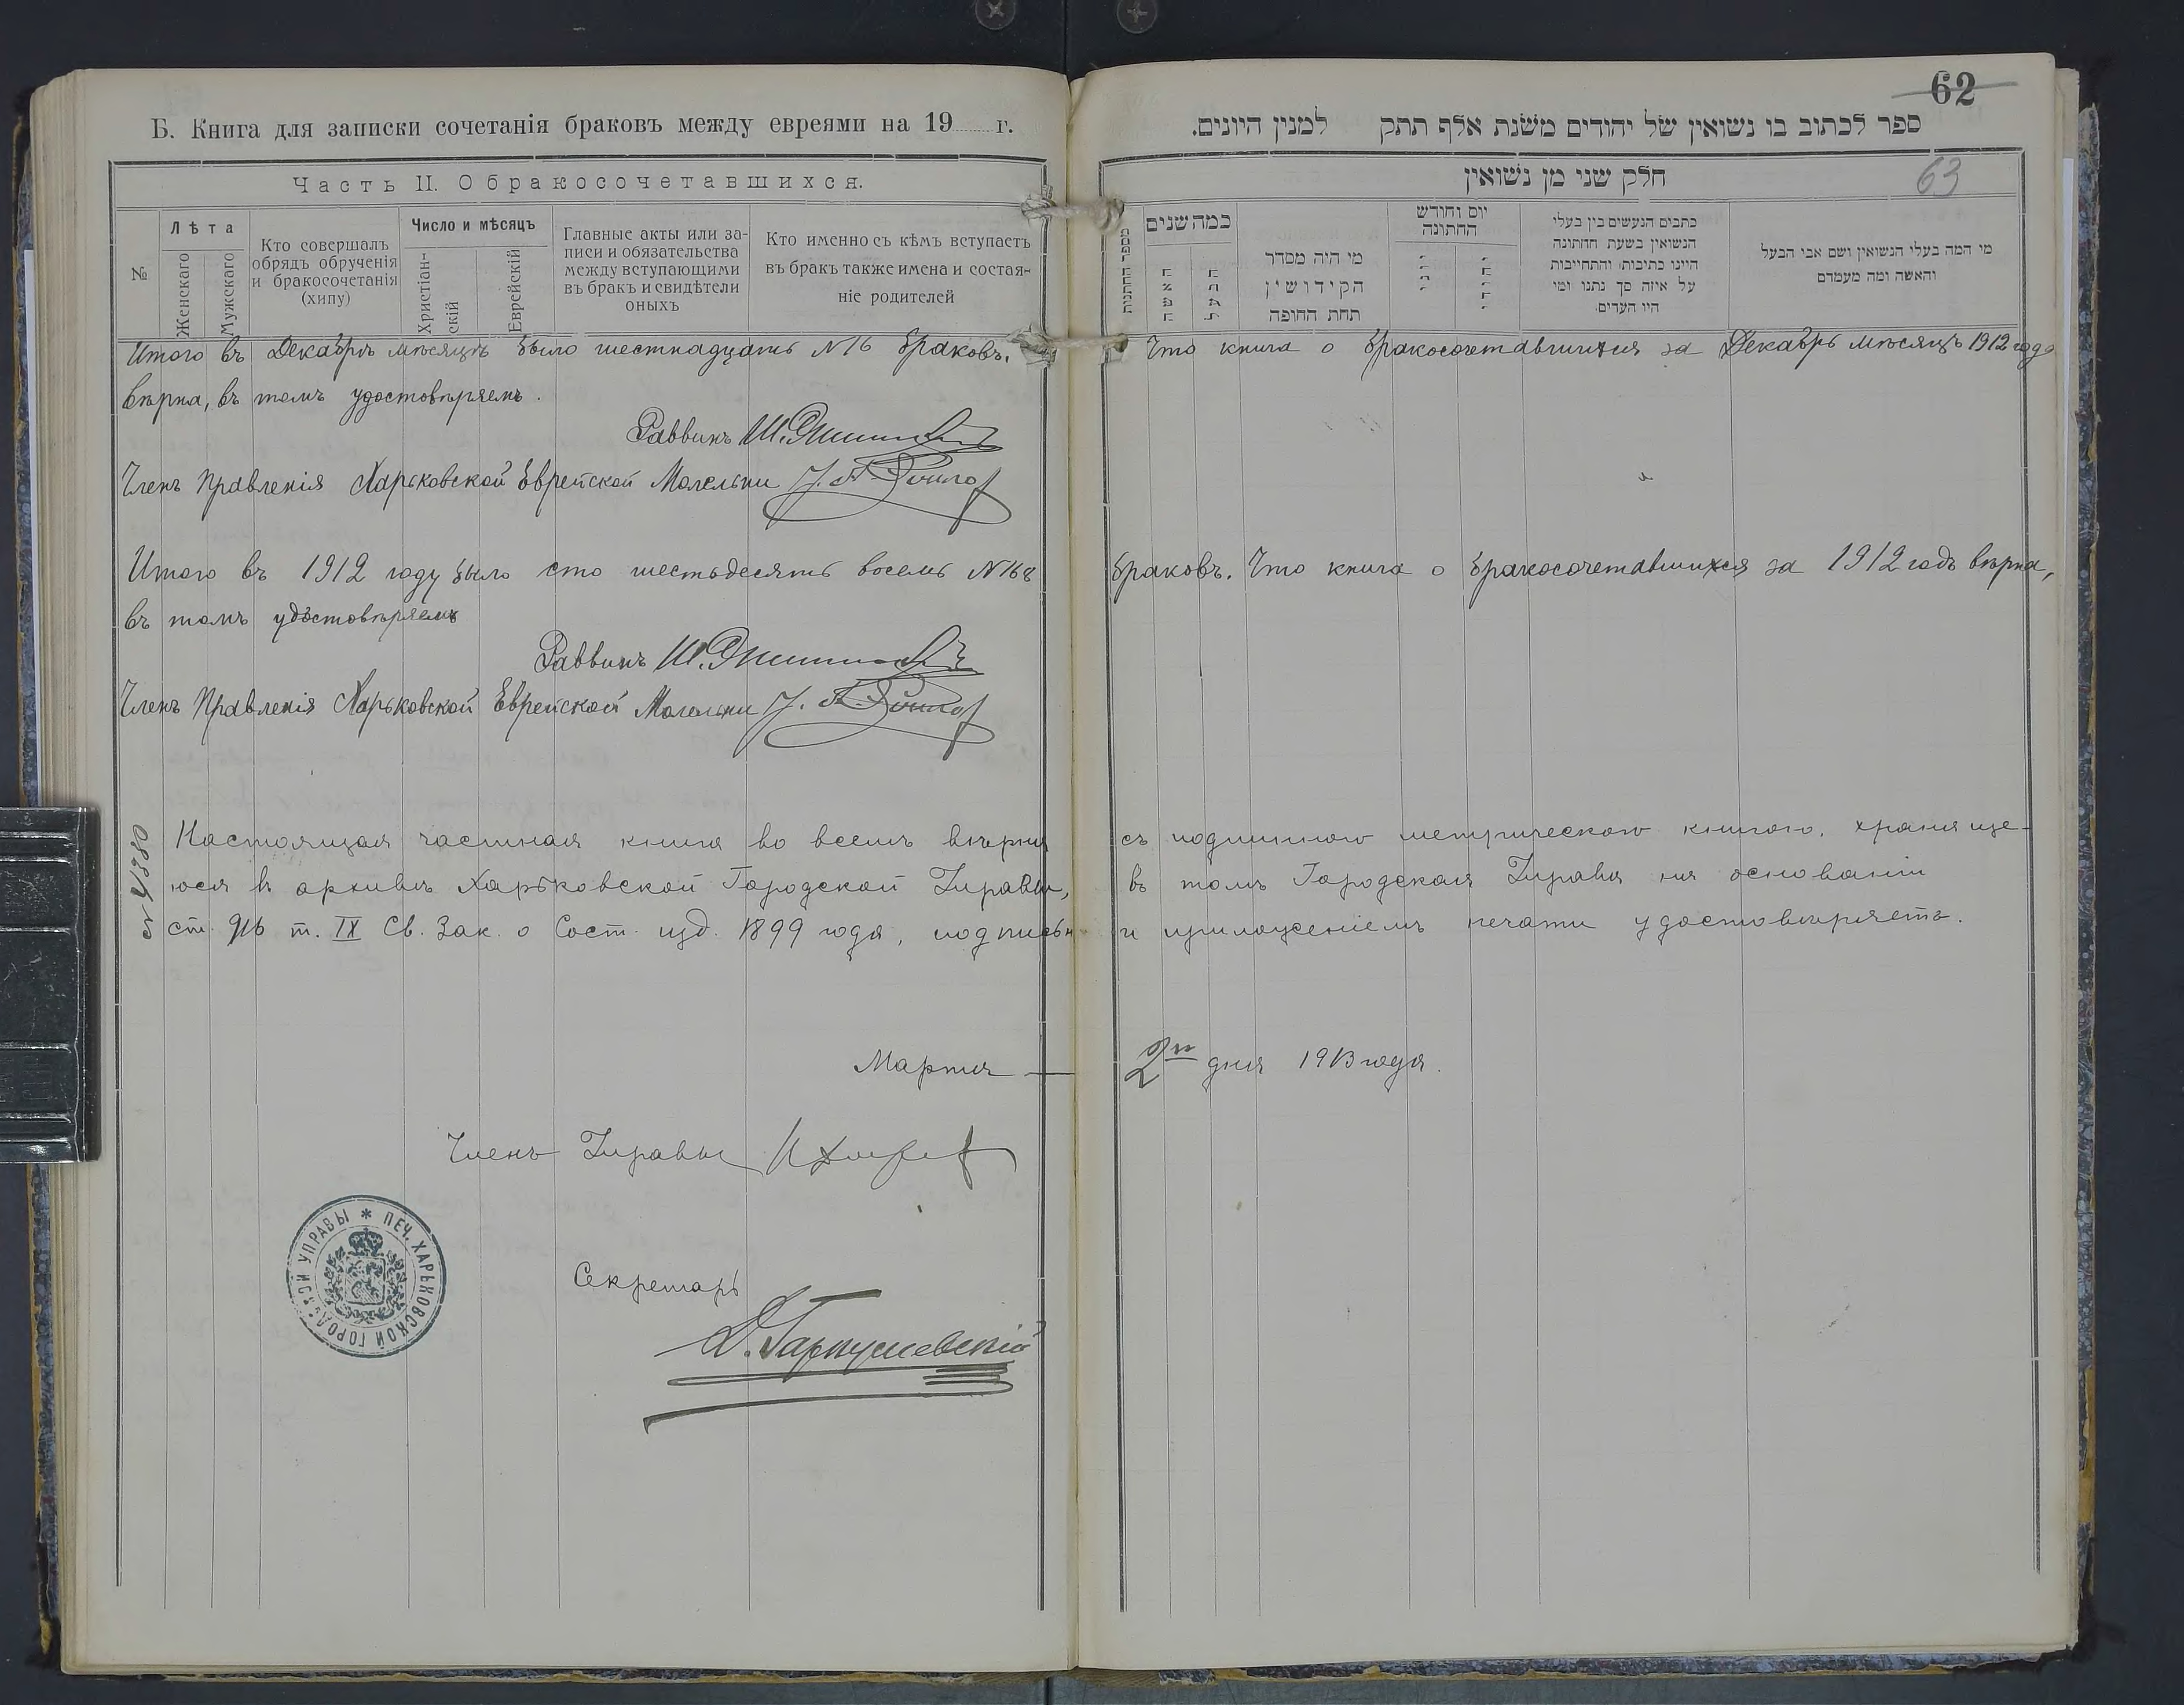 Б. Книга для записки сочетанія браковъ между евреями на 19 г.
Часть II. О бракосочетавшихся.
№
Лѣта
Женскаго
Мужскаго
Кто совершалъ
обрядъ обрученія
и бракосочетанія
(хипу)
Число и мѣсяцъ
Христіан-
скій
Еврейскій
Главные акты или за-
писи и обязательства
между вступающими
въ бракъ и свидѣтели
оныхъ
Кто именно съ кѣмъ вступаетъ
въ бракъ также имена и состоя-
ніе родителей
Итого въ Декабрѣ мѣсяцѣ было шестнадцать №16 браковъ.
вѣрна, въ томъ удостовѣряемъ.
Раввинъ Ш.
Членъ Правленія Харьковской Еврейской Молельни
Итого въ 1912 году было сто шестьдесятъ восемь №168
въ томъ удостовѣряемъ
Раввинъ Ш.
Членъ Правленія Харьковской Еврейской Молельни
№ 4380
Настоящая частная книга во всемъ вѣрна
юся въ архивѣ Харьковской Городской Управы,
ст. 916 т. IX Св. Зак. о Сост. изд. 1899 года, подписью
Марта
Членъ Управы
ПЕЧ. ХАРЬКОВСКОЙ ГОРОДСКОЙ УПРАВЫ
Секретарь
62
63
ספר לכתוב בו נשואין של יהודים משנת אלף תתק למנין היונים.
חלק שני מן נשואין
מספר החתונות
כמה שנים
האשה
הבעל
מי היה מסדר
הקידושין
תחת החופה
יום וחודש
החתונה
יוני
יהודי
כתבים הנעשים בין בעלי
הנשואין בשעת החתונה
היינו כתיבות והתחייבות
על איזה סך נתנו ומי
היו העדים.
מי המה בעלי הנשואין ושם אבי הבעל
והאשה ומה מעמדם
Что книга о бракосочетавшихся за Декабрь мѣсяцъ 1912 года
браковъ. Что книга о бракосочетавшихся за 1912 годъ вѣрна,
съ подлинною метрическою книгою, храняще-
въ томъ Городская Управа на основаніи
и приложеніемъ печати удостовѣряетъ.
2го дня 1913 года.